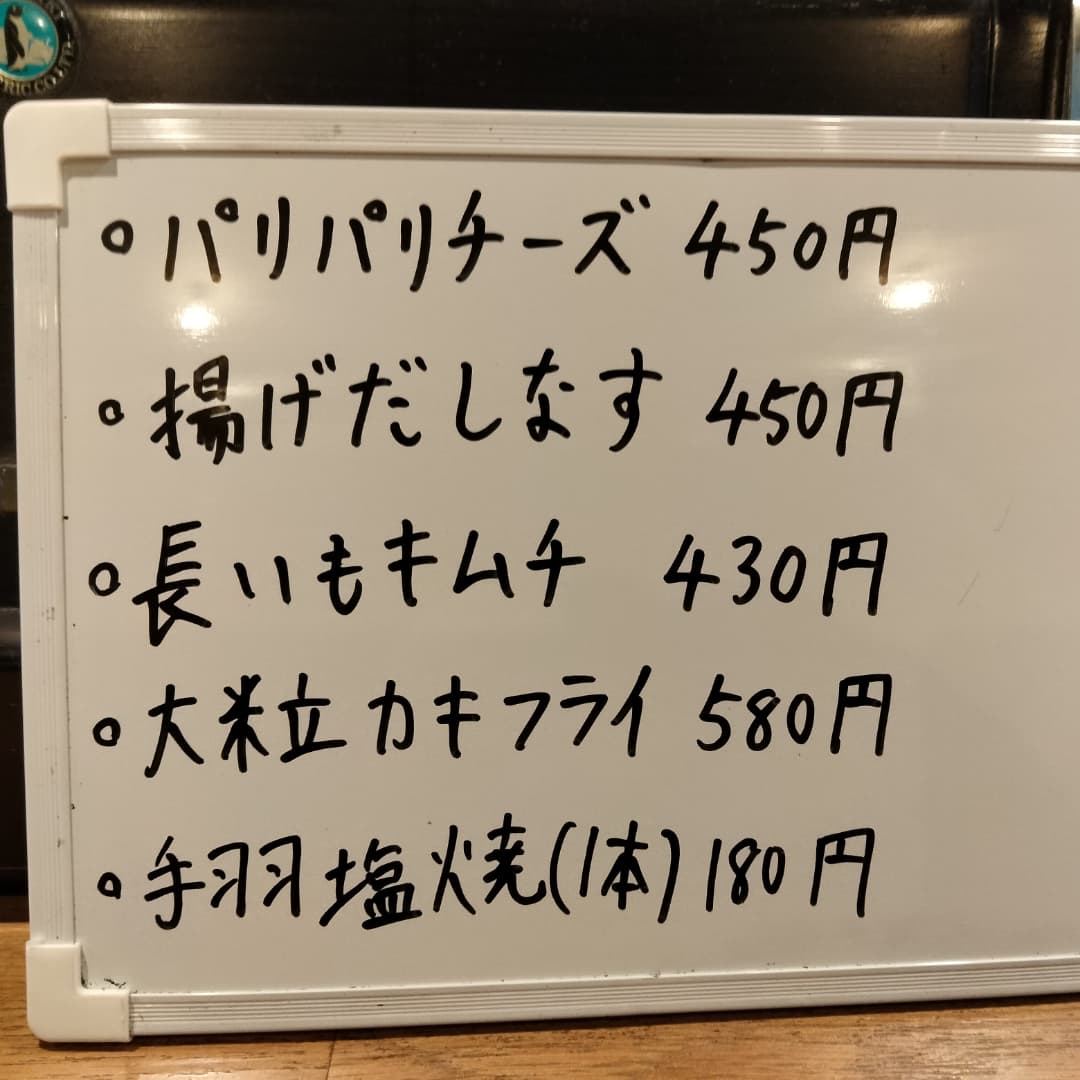 。パリパリチーズ 450円
。揚げだしなす 450円
。長いもキムチ 430円
。大粒カキフライ 580円
。手羽塩焼(1本) 180円